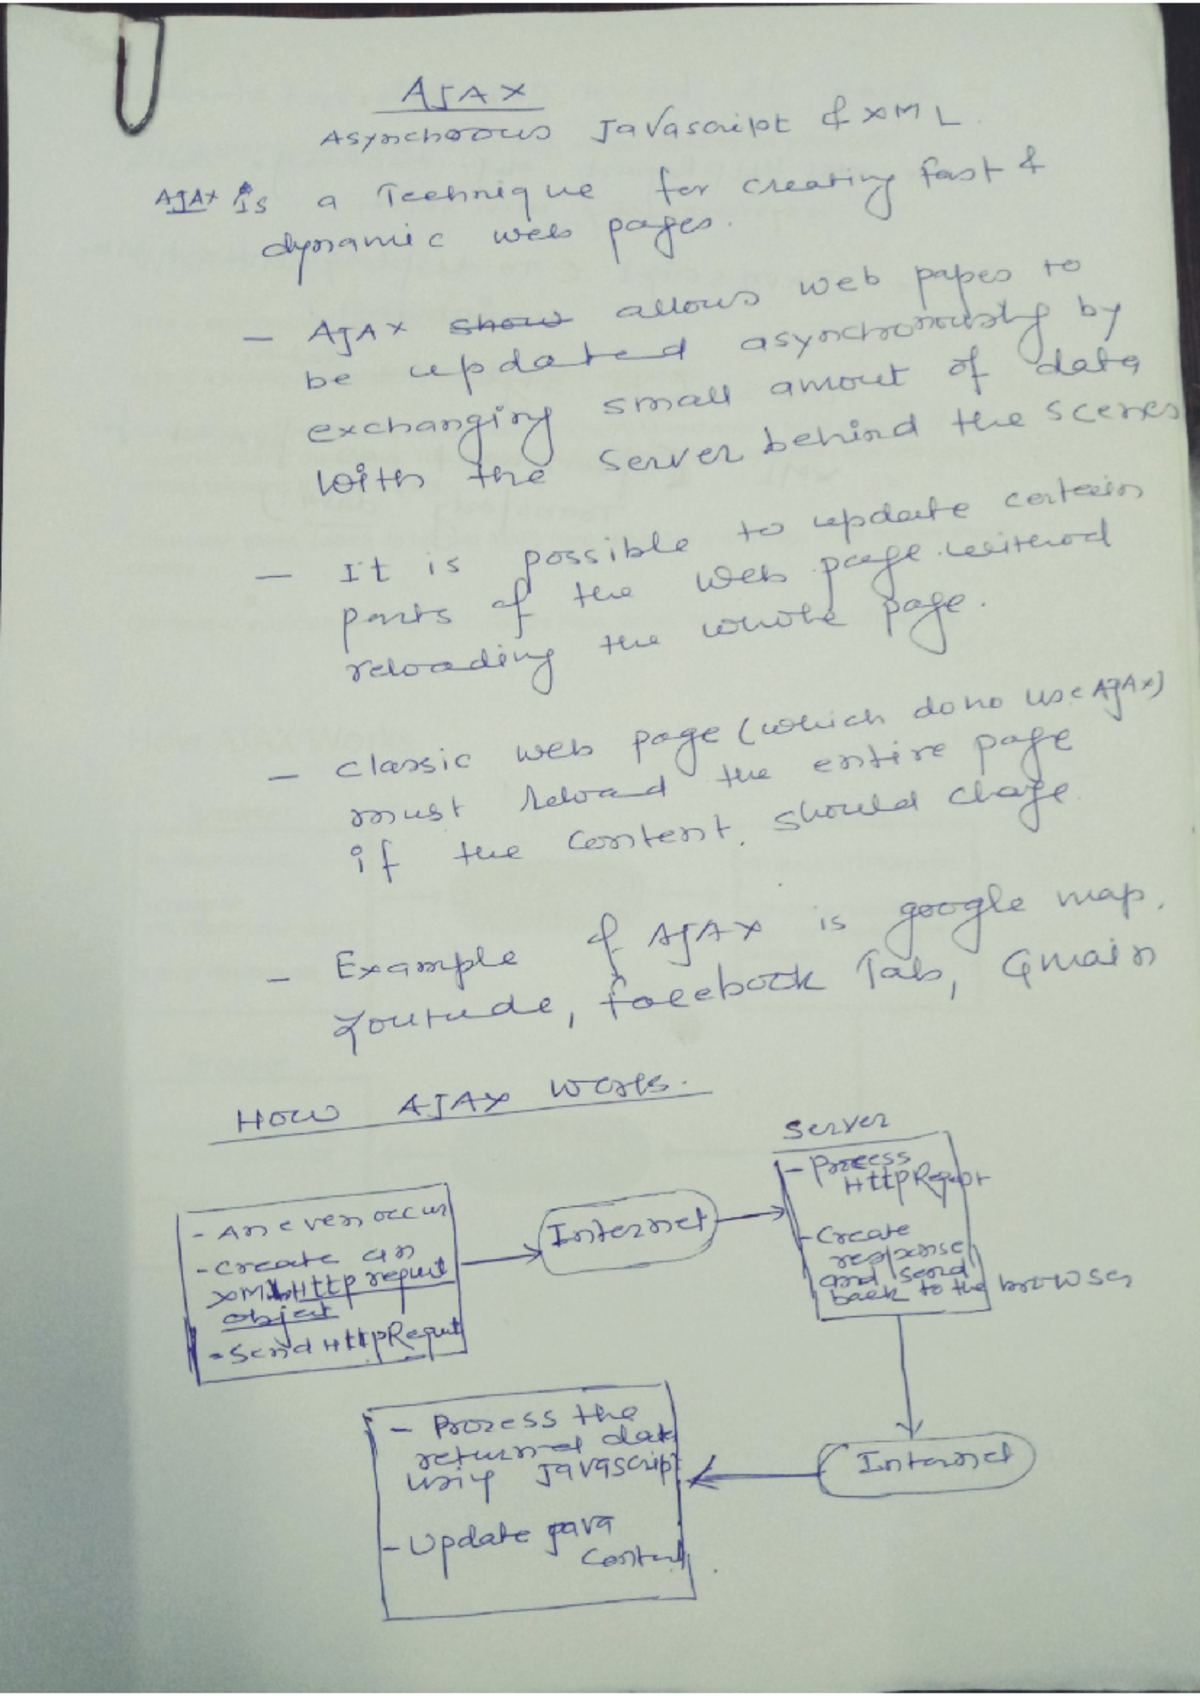 AJAX
Asynchronous Javascript & XML.
AJAX is a Technique for creating fast &
dynamic web pages.
- AJAX show allows web papes to
be updated asynchronously by
exchanging small amout of data
with the server behind the scenes
- It is possible to update certain
parts of the web page without
reloading the whole page.
- classic web page (which do no use AJAX)
must reload the entire page
if the content. should chage
- Example of AJAX is google map,
Youtude, facebook Tab, Gmain
How AJAX works.
Server
- An even occur
- create an
XML Http request
object
- Send HttpRequt
Internet
- Process
HttpRequst
- Create
response
and send
back to the browser
Internet
- Process the
returned data
using Javascript
- Update java
Content